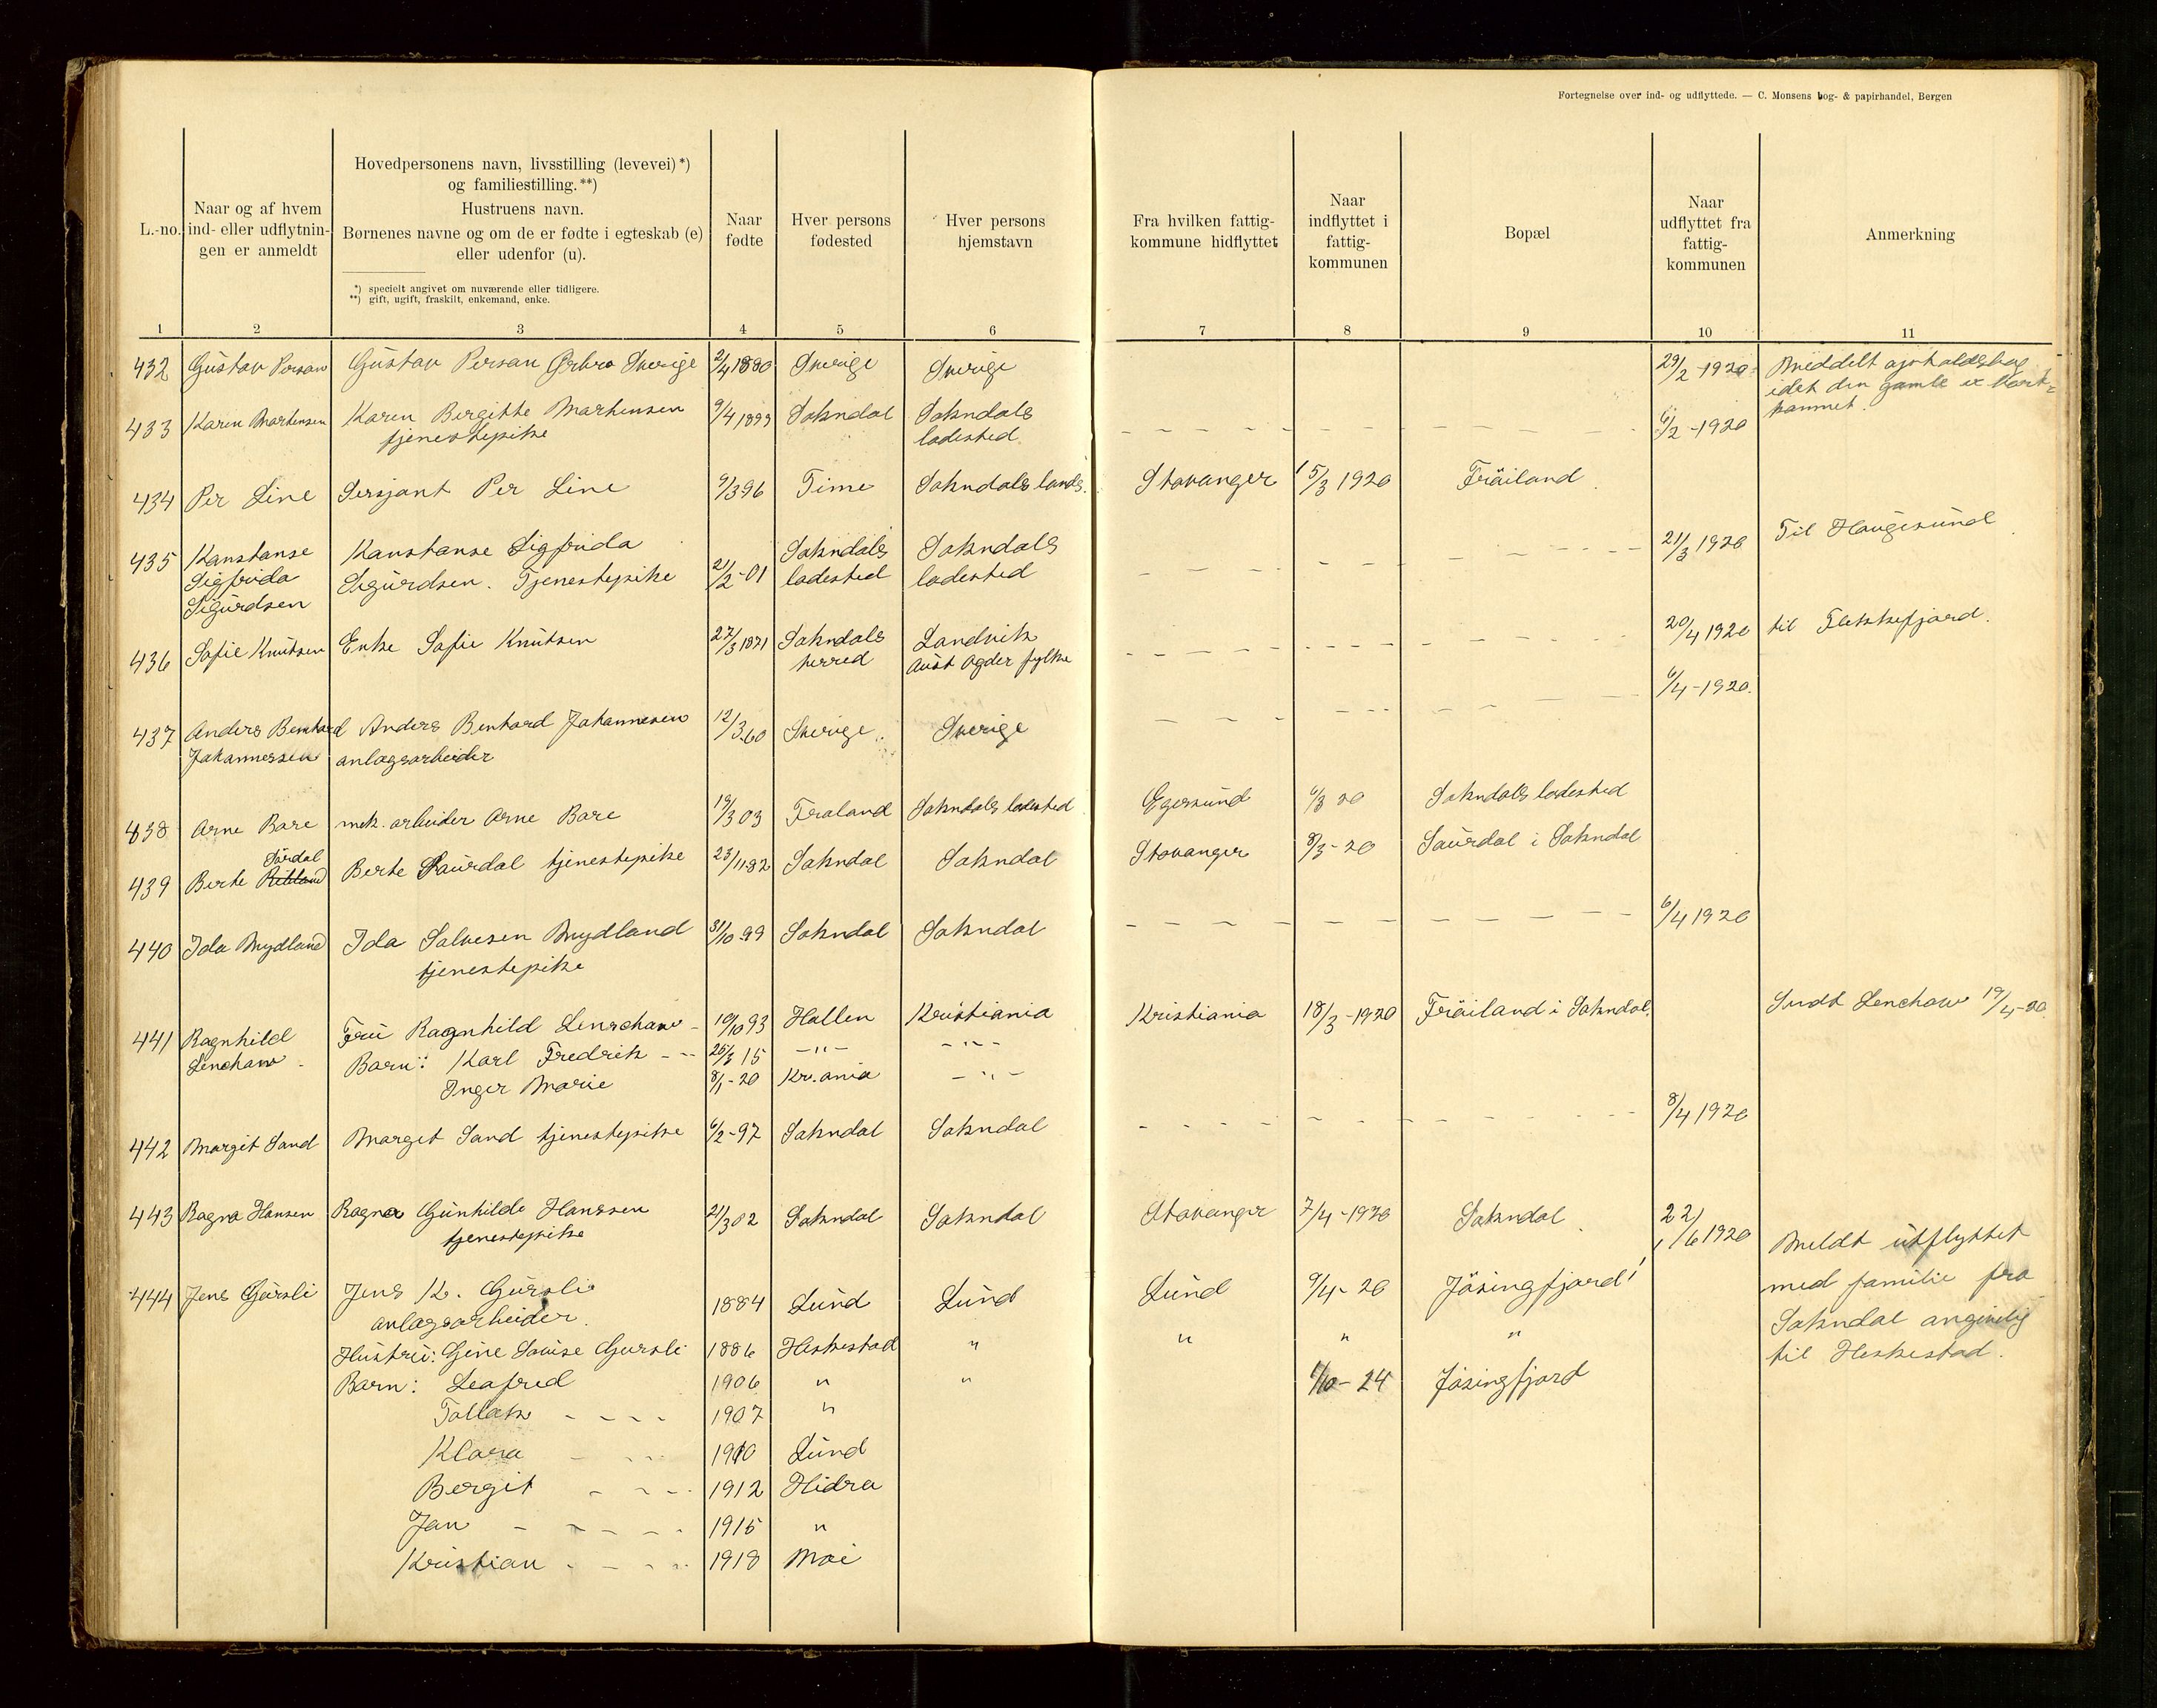 Fortegnelse over ind- og udflyttede. — C. Monsens bog- & papirhandel, Bergen
L.-no.
Naar og af hvem
ind- eller udflytnin-
gen er anmeldt
Hovedpersonens navn, livsstilling (levevei)*)
og familiestilling.**)
Hustruens navn.
Børnenes navne og om de er fødte i egteskab (e)
eller udenfor (u).
*) specielt angivet om nuværende eller tidligere.
**) gift, ugift, fraskilt, enkemand, enke.
Naar
fødte
Hver persons
fødested
Hver persons
hjemstavn
Fra hvilken fattig-
kommune hidflyttet
Naar
indflyttet i
fattig-
kommunen
Bopæl
Naar
udflyttet fra
fattig-
kommunen
Anmerkning
1 2 3 4 5 6 7 8 9 10 11
432 Gustav Persan Gustav Persan Ørbro Sverige 2/4 1880 Sverige Sverige 29/2-1920 Meddelt opholdsbog
idet den gamle er bort-
kommet.
433 Karen Martensen Karen Bergitte Martensen 9/4 1899 Sokndal Sokndals - - - - 6/2-1920
tjenestepike ladested
434 Per Line Sersjant Per Line 9/3 96 Time Sokndals lands. Stavanger 15/3 1920 Fröiland
435 Konstanse Konstanse Sigfrida Sokndals Sokndals - - - - 21/3 1920 Til Haugesund
Sigfrida Sigurdsen. Tjenestepike 21/2-01 ladested ladested
Sigurdsen
436 Sofie Knutsen Enke Sofie Knutsen 27/3 1871 Sokndals Landvik - - - - 20/4 1920 til Flekkefjord.
herred Aust Agder fylke
437 Anders Bernhard Anders Bernhard Johannesen 12/3.60 Sverige Sverige - - - - 6/4-1920.
Johannessen anlægsarbeider
438 Arne Bare mek. arbeider Arne Bare 19/3 03 Froland Sokndals ladested Egersund 6/3 20 Sokndals ladested
Sördal
439 Berte Rilland Berte Saurdal tjenestepike 23/11-82 Sokndal Sokndal Stavanger 8/3-20 Saurdal i Sokndal
440 Ida Mydland Ida Salvesen Mydland 31/10 99 Sokndal Sokndal - - - - 6/4 1920
tjenestepike
441 Ragnhild Fru Ragnhild Lenschow - 19/10 93 Hollen Kristiania Kristiania 18/3-1920 Fröiland i Sokndal. Sendt Lenchow 19/4-20.
Lenchow - Barn: Karl Fredrik - - 25/3 15 -"- -"-
Inger Marie 8/1-20 Kr.ania -"-
442 Margit Sand Marget Sand tjenestepike 6/2-97 Sokndal Sokndal - - - - 8/4 1920
443 Ragna Hansen Ragna Gunhilde Hanssen 21/3 02 Sokndal Sokndal Stavanger 7/4-1920 Sokndal 22/6 1920
tjenestepike
Meldt utflyttet
444 Jens Gursli Jens K. Gursli 1884 Lund Lund Lund 9/4-20 Jösingfjord med familie fra
anlægsarbeider. Sokndal angivelig
Hustru: Gine Lovise Gursli 1886 Heskestad " " " " til Heskestad.
Barn: Leafred 1906 " " 1/10-24 Jösingfjord
Tollak - - - - 1907 "
Klara - - - 1910 Lund
Bergit - - - 1912 Hidra
Jan - - - - - 1915 "
Kristian - - - 1918 Moi